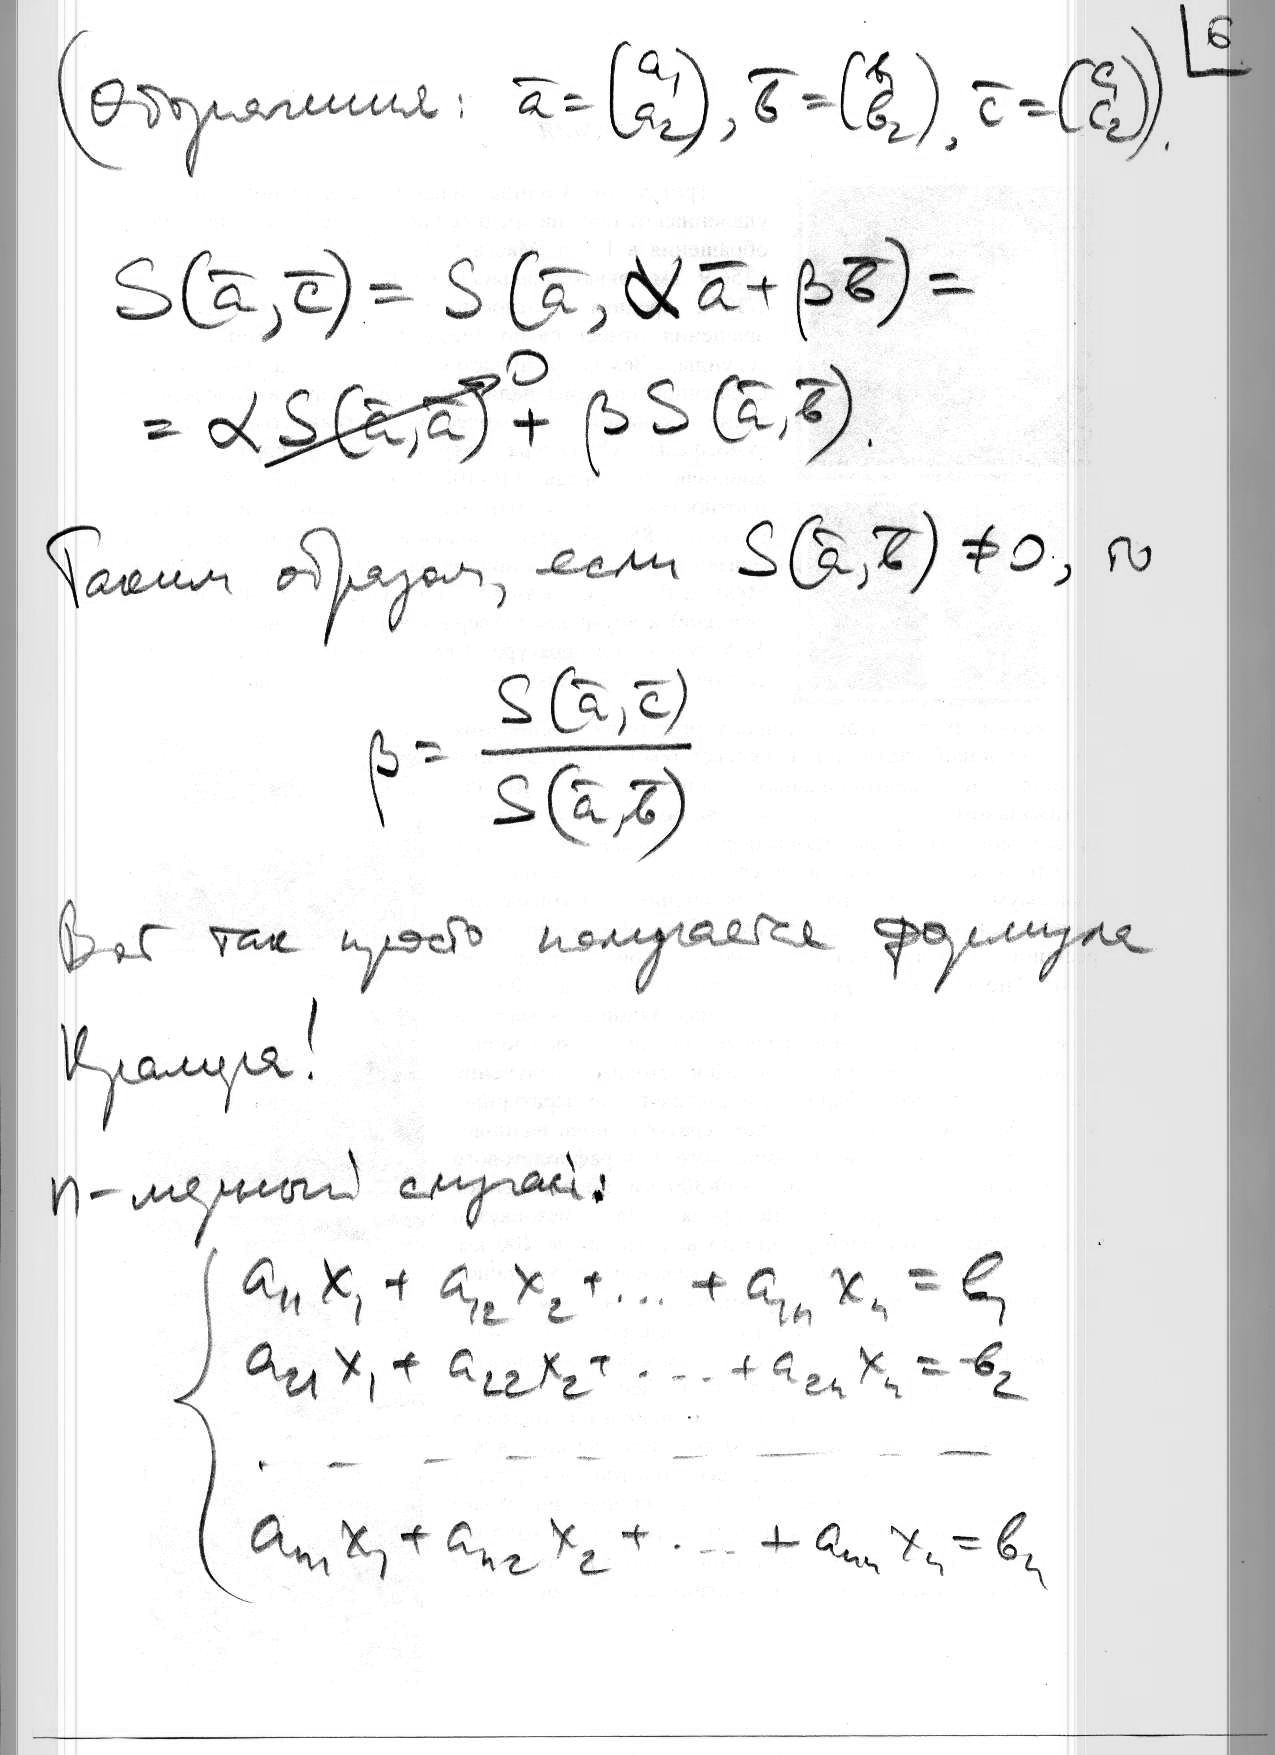 6
(Обозначения: a̅ = (a₁ a₂), в̅ = (в₁ в₂), c̅ = (c₁ c₂)).
S(a̅, c̅) = S(a̅, αa̅ + βв̅) =
= αS(a̅, a̅)⁰ + βS(a̅, в̅).
Таким образом, если S(a̅, в̅) ≠ 0, то
β = S(a̅, c̅) / S(a̅, в̅)
Вот так просто получается формула
Крамера!
n-мерный случай:
a₁₁x₁ + a₁₂x₂ + ... + a₁ₙxₙ = в₁
a₂₁x₁ + a₂₂x₂ + ... + a₂ₙxₙ = в₂
. – – – – – – – –
aₙ₁x₁ + aₙ₂x₂ + ... + aₙₙxₙ = вₙ